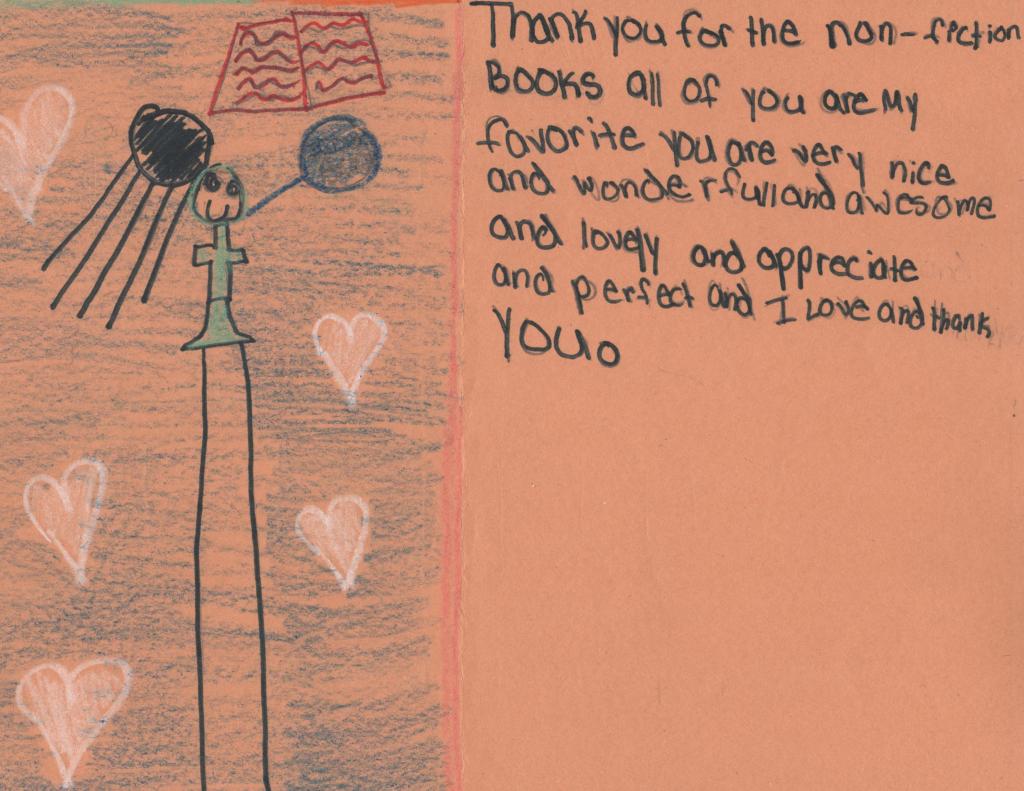 Thank you for the non-fiction
Books all of you are My
favorite you are very nice
and wonderfull and awesome
and lovely and appreciate
and perfect and I Love and thank
you.